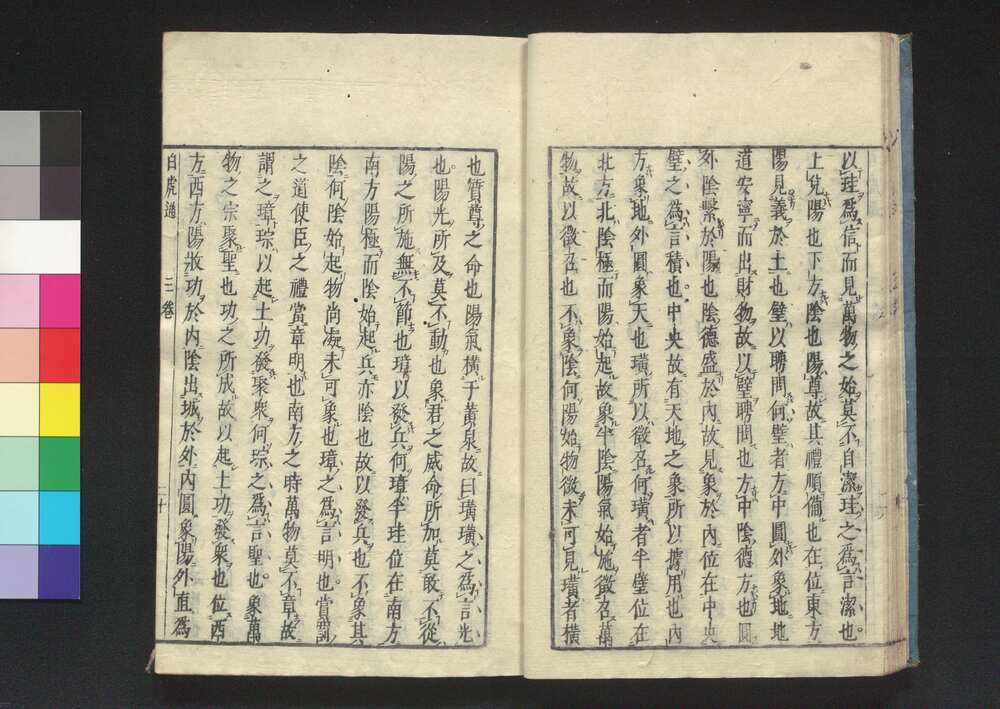 以珪爲信而見萬物之始莫不自潔珪之爲言潔也
上兌陽也下方陰也陽尊故其禮順備也在位東方
陽見義於土也璧以聘問何璧者方中圓外象地地
道安寧而出財物故以璧聘問也方中陰德方也圓
外陰繫於陽也陰德盛於內故見象於內位在中央
璧之爲言積也中央故有天地之象所以據用也內
方象地外圓象天也璜所以徵召何璜者半璧位在
北方北陰極而陽始起故象半陰陽氣始施徵召萬
物故以徵召也不象陰何陽始物微未可見璜者橫
也質尊之命也陽氣橫于黃泉故曰璜璜之爲言光
也陽光所及莫不動也象君之威命所加莫敢不從
陽之所施無不節也璋以發兵何璋半珪位在南方
南方陽極而陰始起兵亦陰也故以發兵也不象其
陰何陰始起物尚凝未可象也璋之爲言明也賞罰
之道使臣之禮當章明也南方之時萬物莫不章故
謂之璋琮以起土功發聚衆何琮之爲言聖也象萬
物之宗聚聖也功之所成故以起土功發衆也位西
方西方陽收功於內陰出城於外內圓象陽外直爲
白虎通 三卷 二十